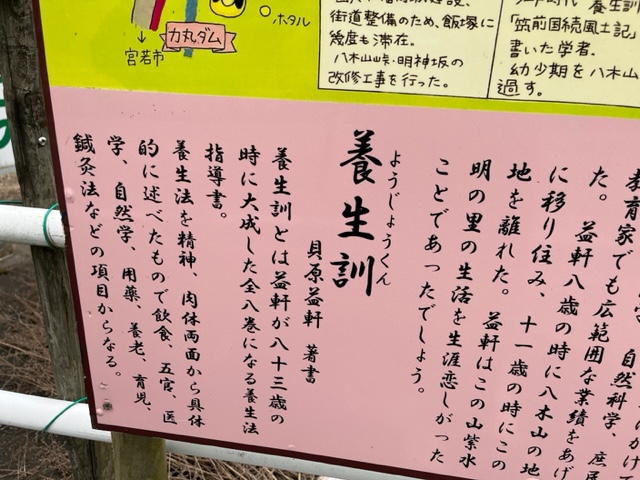 ホタル
力丸ダム
宮若市
街道整備のため、飯塚に
幾度も滞在。
八木山峠・明神坂の
改修工事を行った。
「筑前国続風土記」
書いた学者。
幼少期を八木山
過す。
た。益軒八歳の時に八木山の地
に移り住み、十一歳の時にこの
地を離れた。益軒はこの山紫水
明の里の生活を生涯恋しがった
ことであったでしょう。
ようじょうくん
養生訓
貝原益軒 著書
養生訓とは益軒が八十三歳の
時に大成した全八巻になる養生法
指導書。
養生法を精神、肉体両面から具体
的に述べたもので飲食、五官、医
学、自然学、用薬、養老、育児、
鍼灸法などの項目からなる。